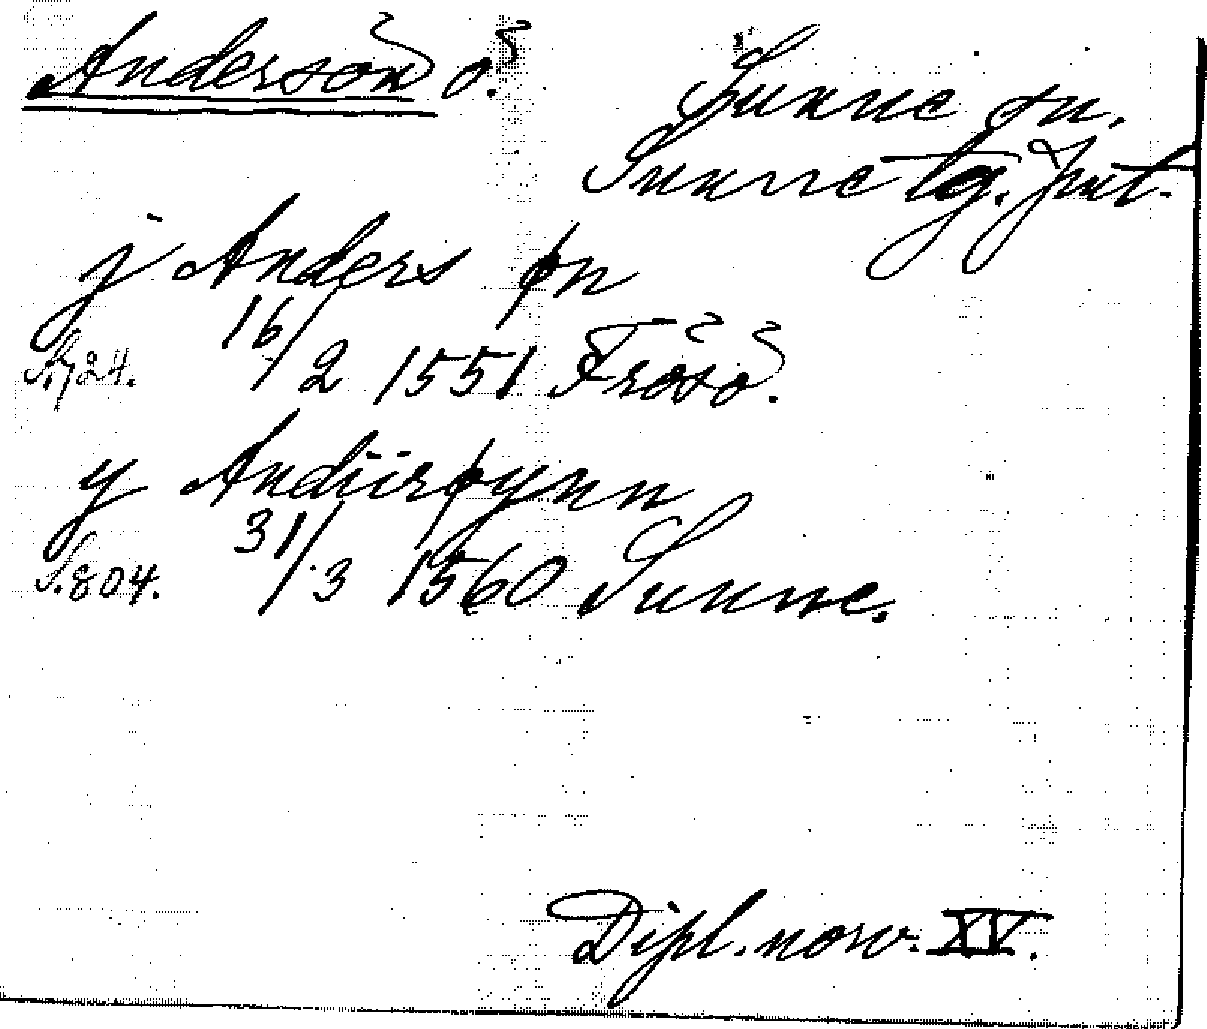 Andersön ö.
Sunne sn.
Sunne tg. Jmt.
j Anders øn
S. 724. 16/2 1551 Frösö.
y Andiirøynn
S. 804. 31/3 1560 Sunne.
Dipl. norv. XV.